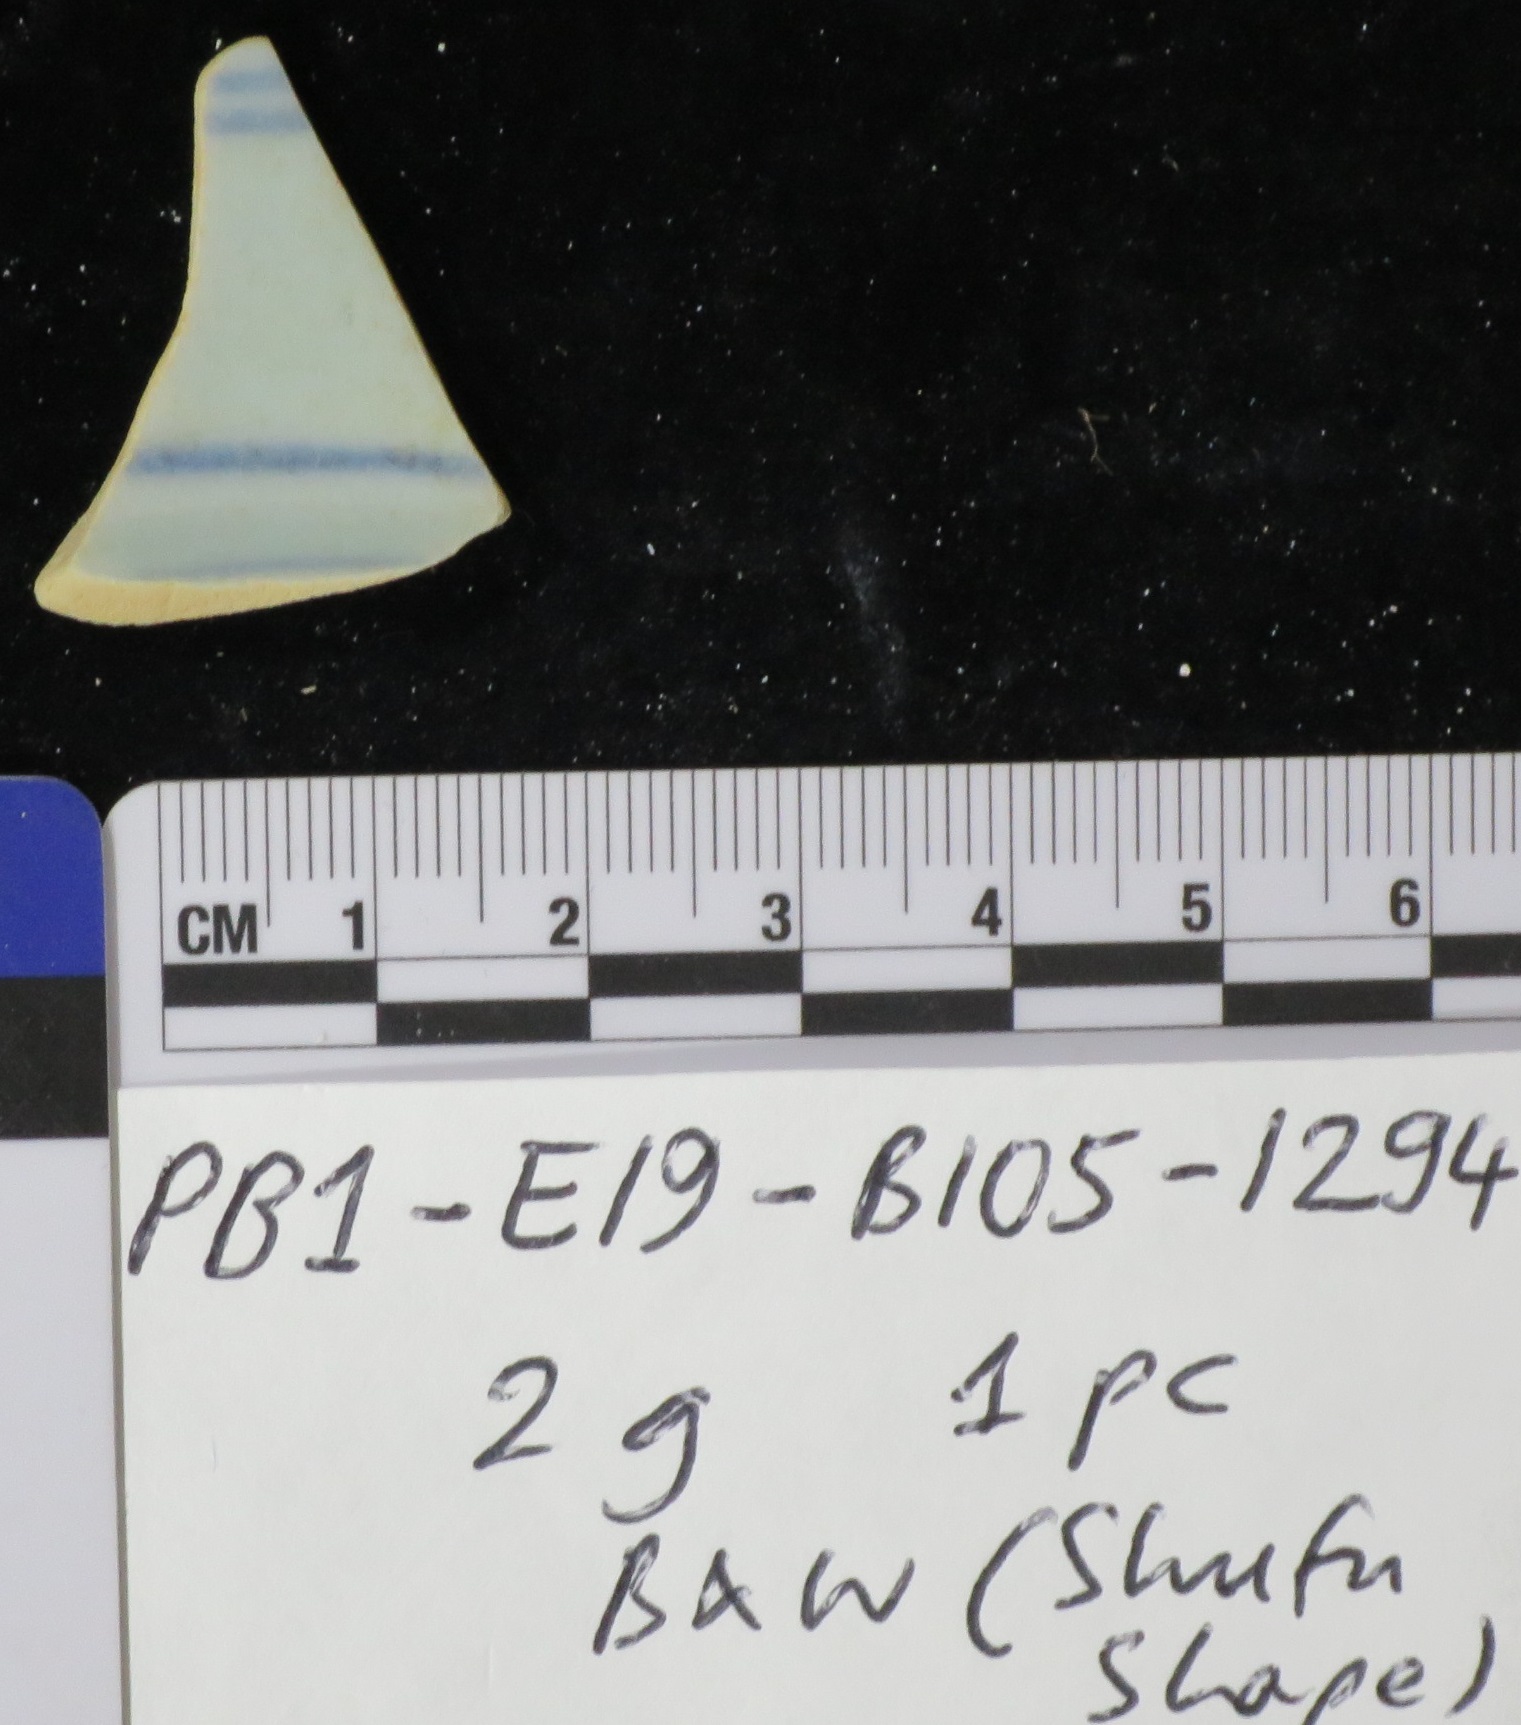 CM 1 2 3 4 5 6
PB1-E19-B105-1294
2g 1pc
B&W (Shufu
Shape)